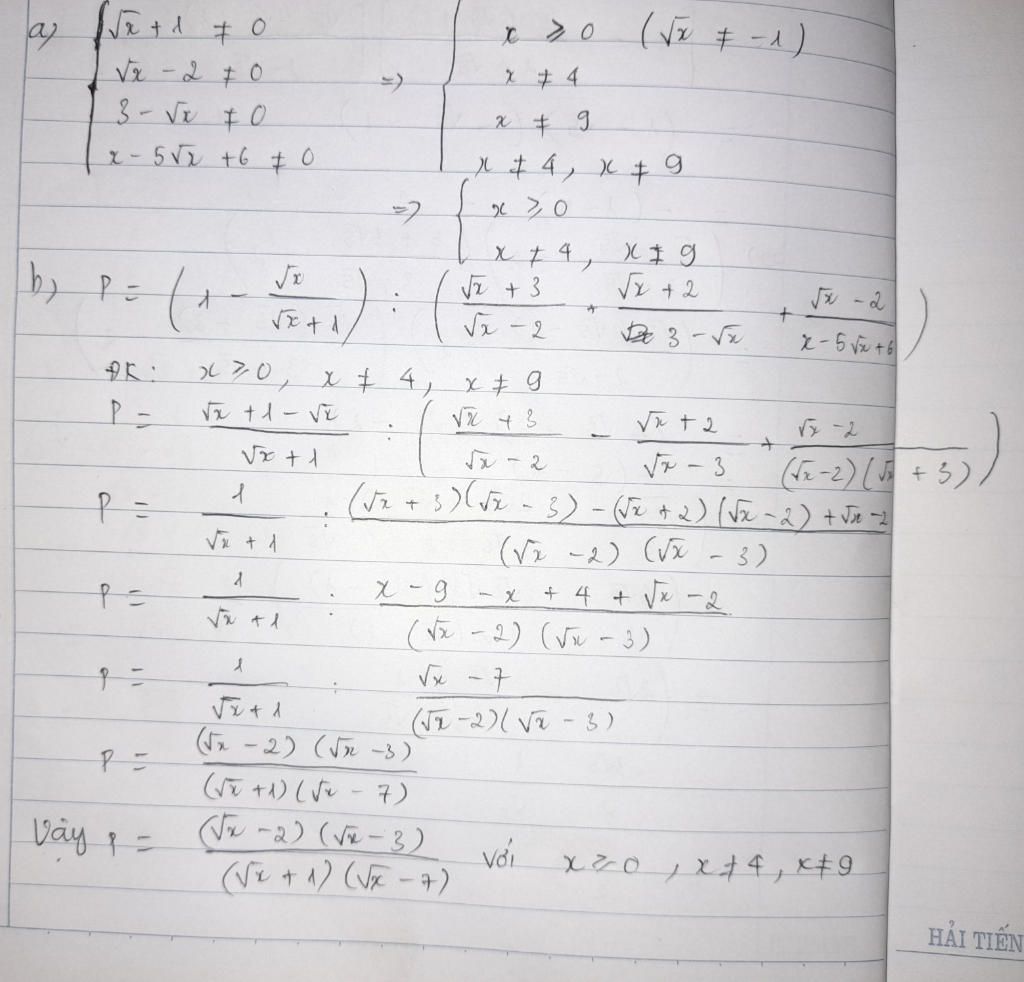 a) { √x + 1 ≠ 0 { x ⩾ 0 (√x ≠ -1)
√x - 2 ≠ 0 => x ≠ 4
3 - √x ≠ 0 x ≠ 9
x - 5√x + 6 ≠ 0 x ≠ 4, x ≠ 9
=> { x ⩾ 0
x ≠ 4, x ≠ 9
b) P = (1 - √x/(√x + 1)) : ((√x + 3)/(√x - 2) + (√x + 2)/(3 - √x) + (√x - 2)/(x - 5√x + 6))
ĐK: x ⩾ 0, x ≠ 4, x ≠ 9
P = (√x + 1 - √x)/(√x + 1) : ((√x + 3)/(√x - 2) - (√x + 2)/(√x - 3) + (√x - 2)/((√x - 2)(√x + 3)))
P = 1/(√x + 1) : ((√x + 3)(√x - 3) - (√x + 2)(√x - 2) + √x - 2)/((√x - 2)(√x - 3))
P = 1/(√x + 1) : (x - 9 - x + 4 + √x - 2)/((√x - 2)(√x - 3))
P = 1/(√x + 1) : (√x - 7)/((√x - 2)(√x - 3))
P = ((√x - 2)(√x - 3))/((√x + 1)(√x - 7))
Vậy P = ((√x - 2)(√x - 3))/((√x + 1)(√x - 7)) với x ⩾ 0, x ≠ 4, x ≠ 9
HẢI TIẾN